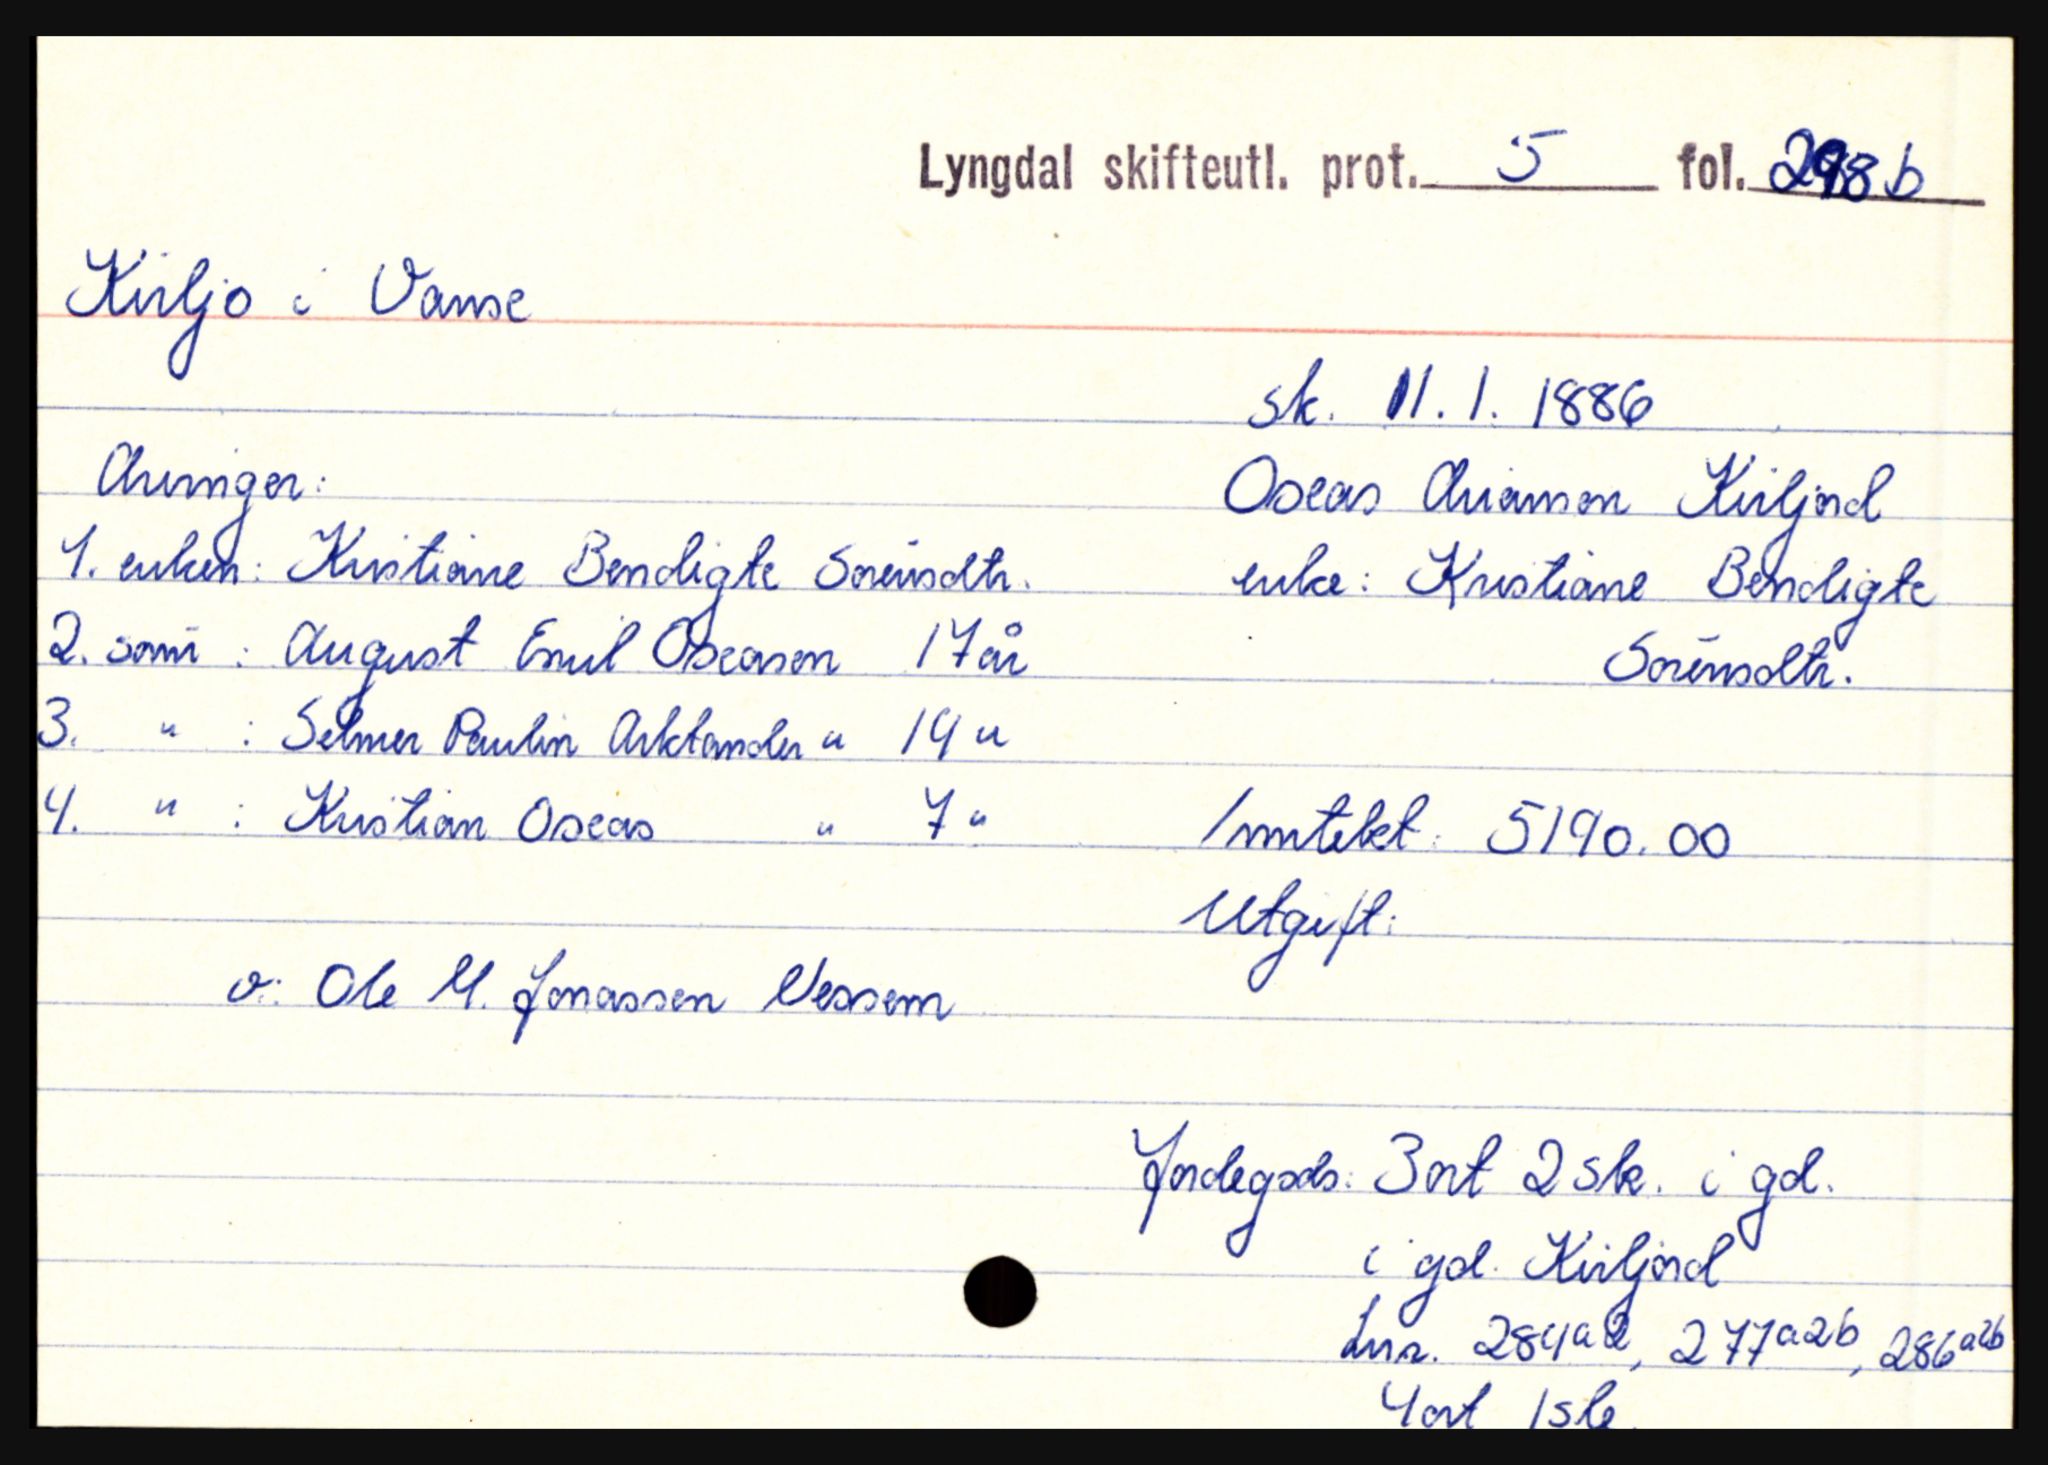 Lyngdal skifteutl. prot. 5 fol. 298 b
Kirljo i Vanse
sk. 11.1. 1886
Arvinger:
Oseas Arianson Kviljord
1. enken: Kristiane Bendigte Sörensdtr.
enke: Kristiane Bendigte
Sörensdtr.
2. sønn : August Emil Oseasen 17 år
3. " : Selmer Paulin Arktander " 14 "
4. " : Kristian Oseas " 7 "
Inntekt: 5190.00
Utgift:
v: Ole M. Jonassen Vessem
Jordegods: 3 ort 2 sk. i gd.
i gd. Kviljord
Lnr. 284a2, 277a2b, 286a2b
4 ort 1 sk.